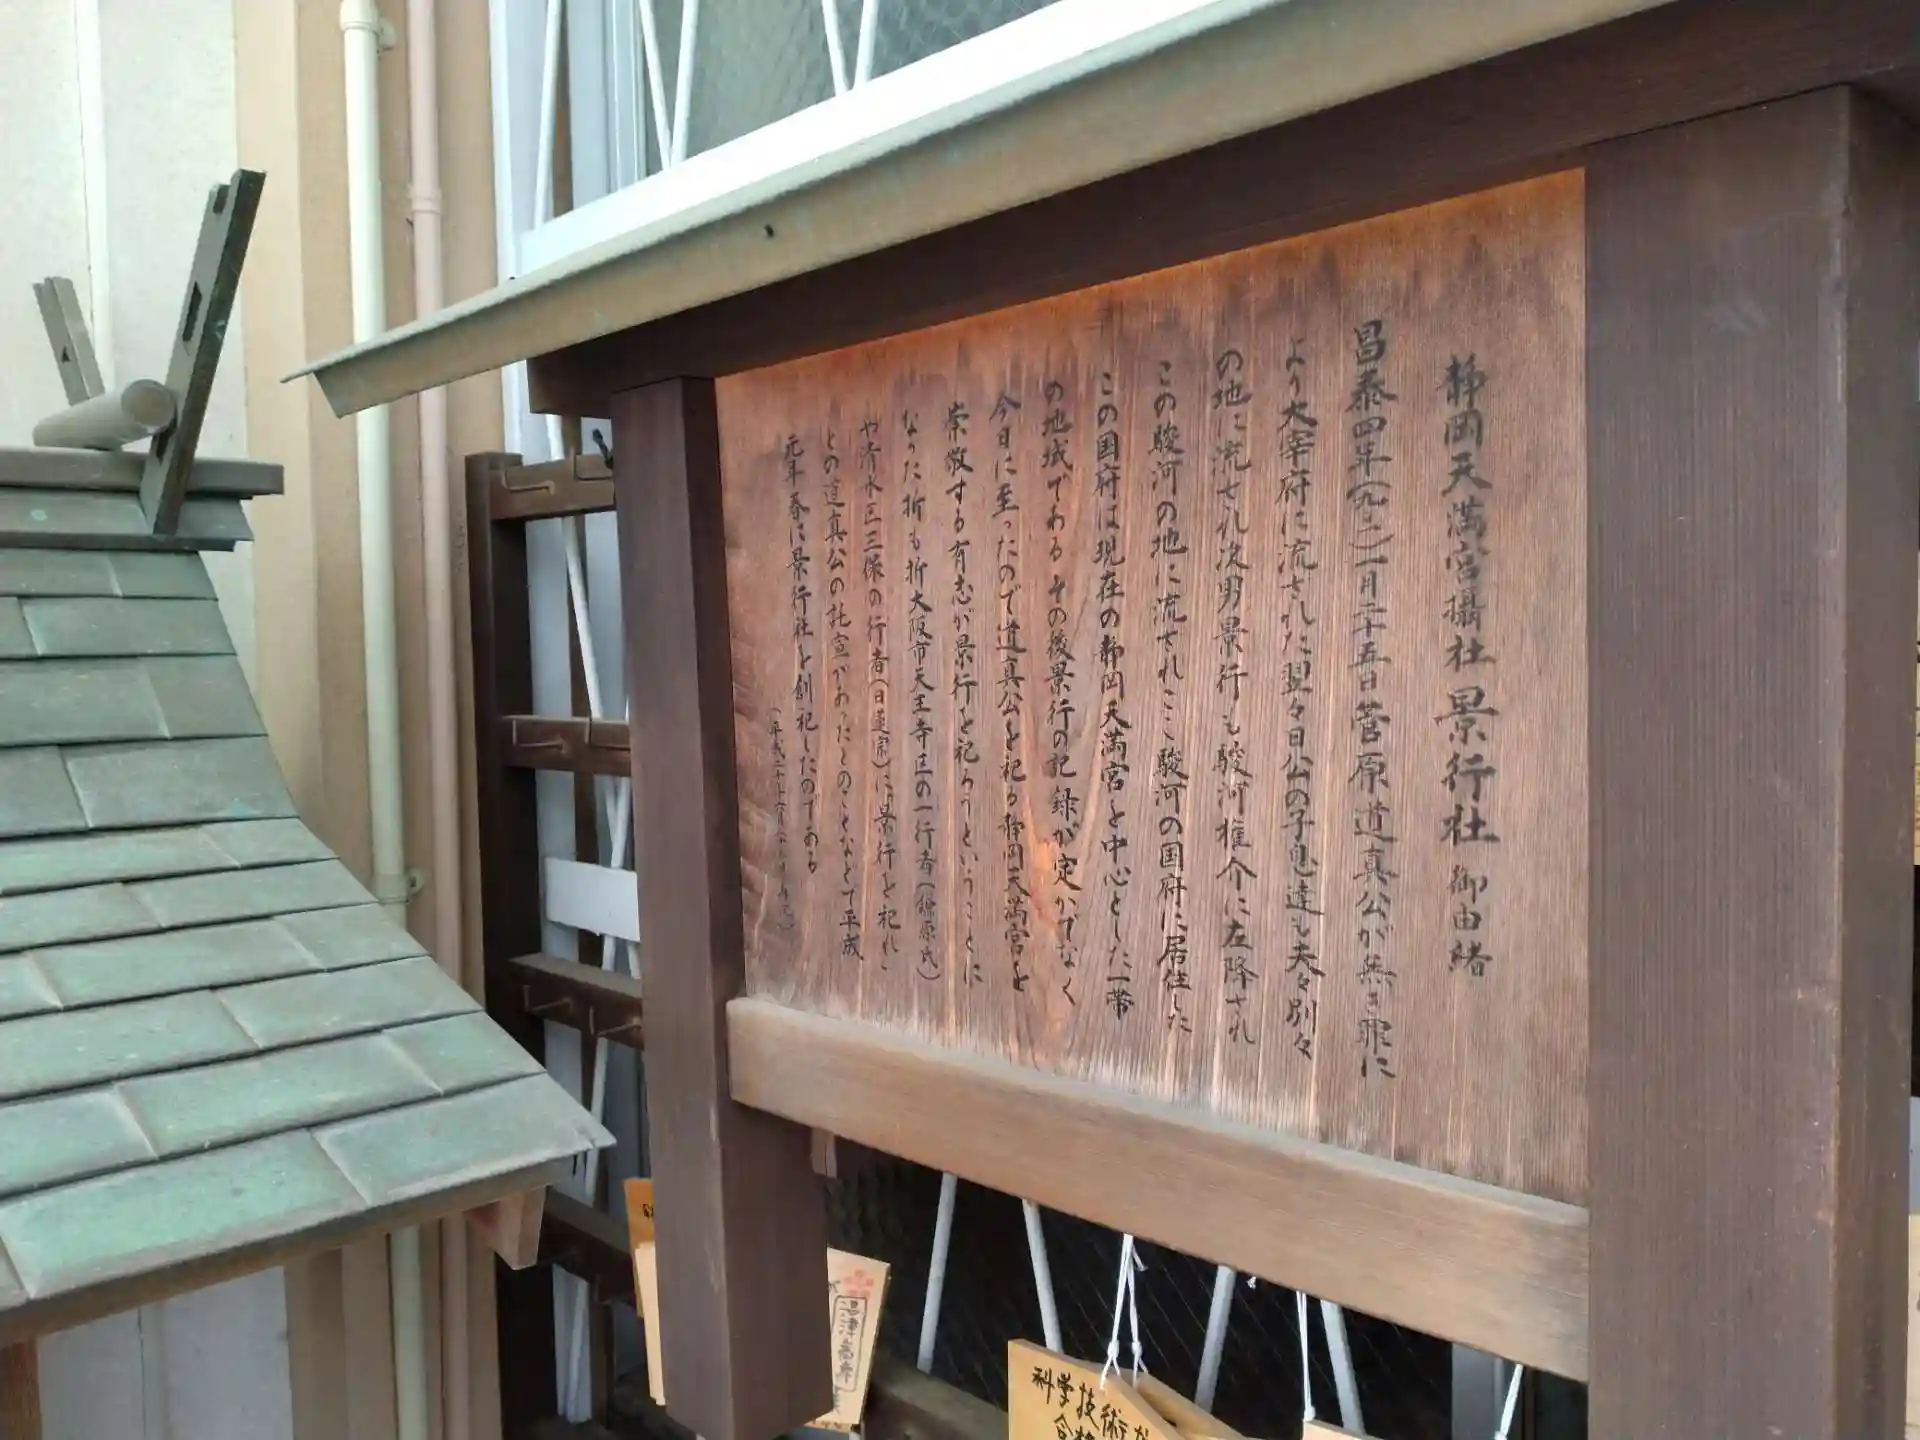 静岡天満宮攝社 景行社 御由緒
昌泰四年(九〇一)一月二十五日菅原道真公が無き罪に
より大宰府に流された翌々日公の子息達も夫々別々
の地に流され次男景行も駿河権介に左降され
この駿河の地に流されここ駿河の国府に居住した
この国府は現在の静岡天満宮を中心とした一帯
の地域である その後景行の記録が定かでなく
今日に至ったので道真公を祀る静岡天満宮を
崇敬する有志が景行を祀ろうということに
なった折も折大阪市天王寺区の一行者(藤原氏)
や清水区三保の行者(日蓮宗)に景行を祀れ
との道真公の託宣があったとのことなどで平成
元年春に景行社を創祀したのである
科学技術
合格
沼津高専